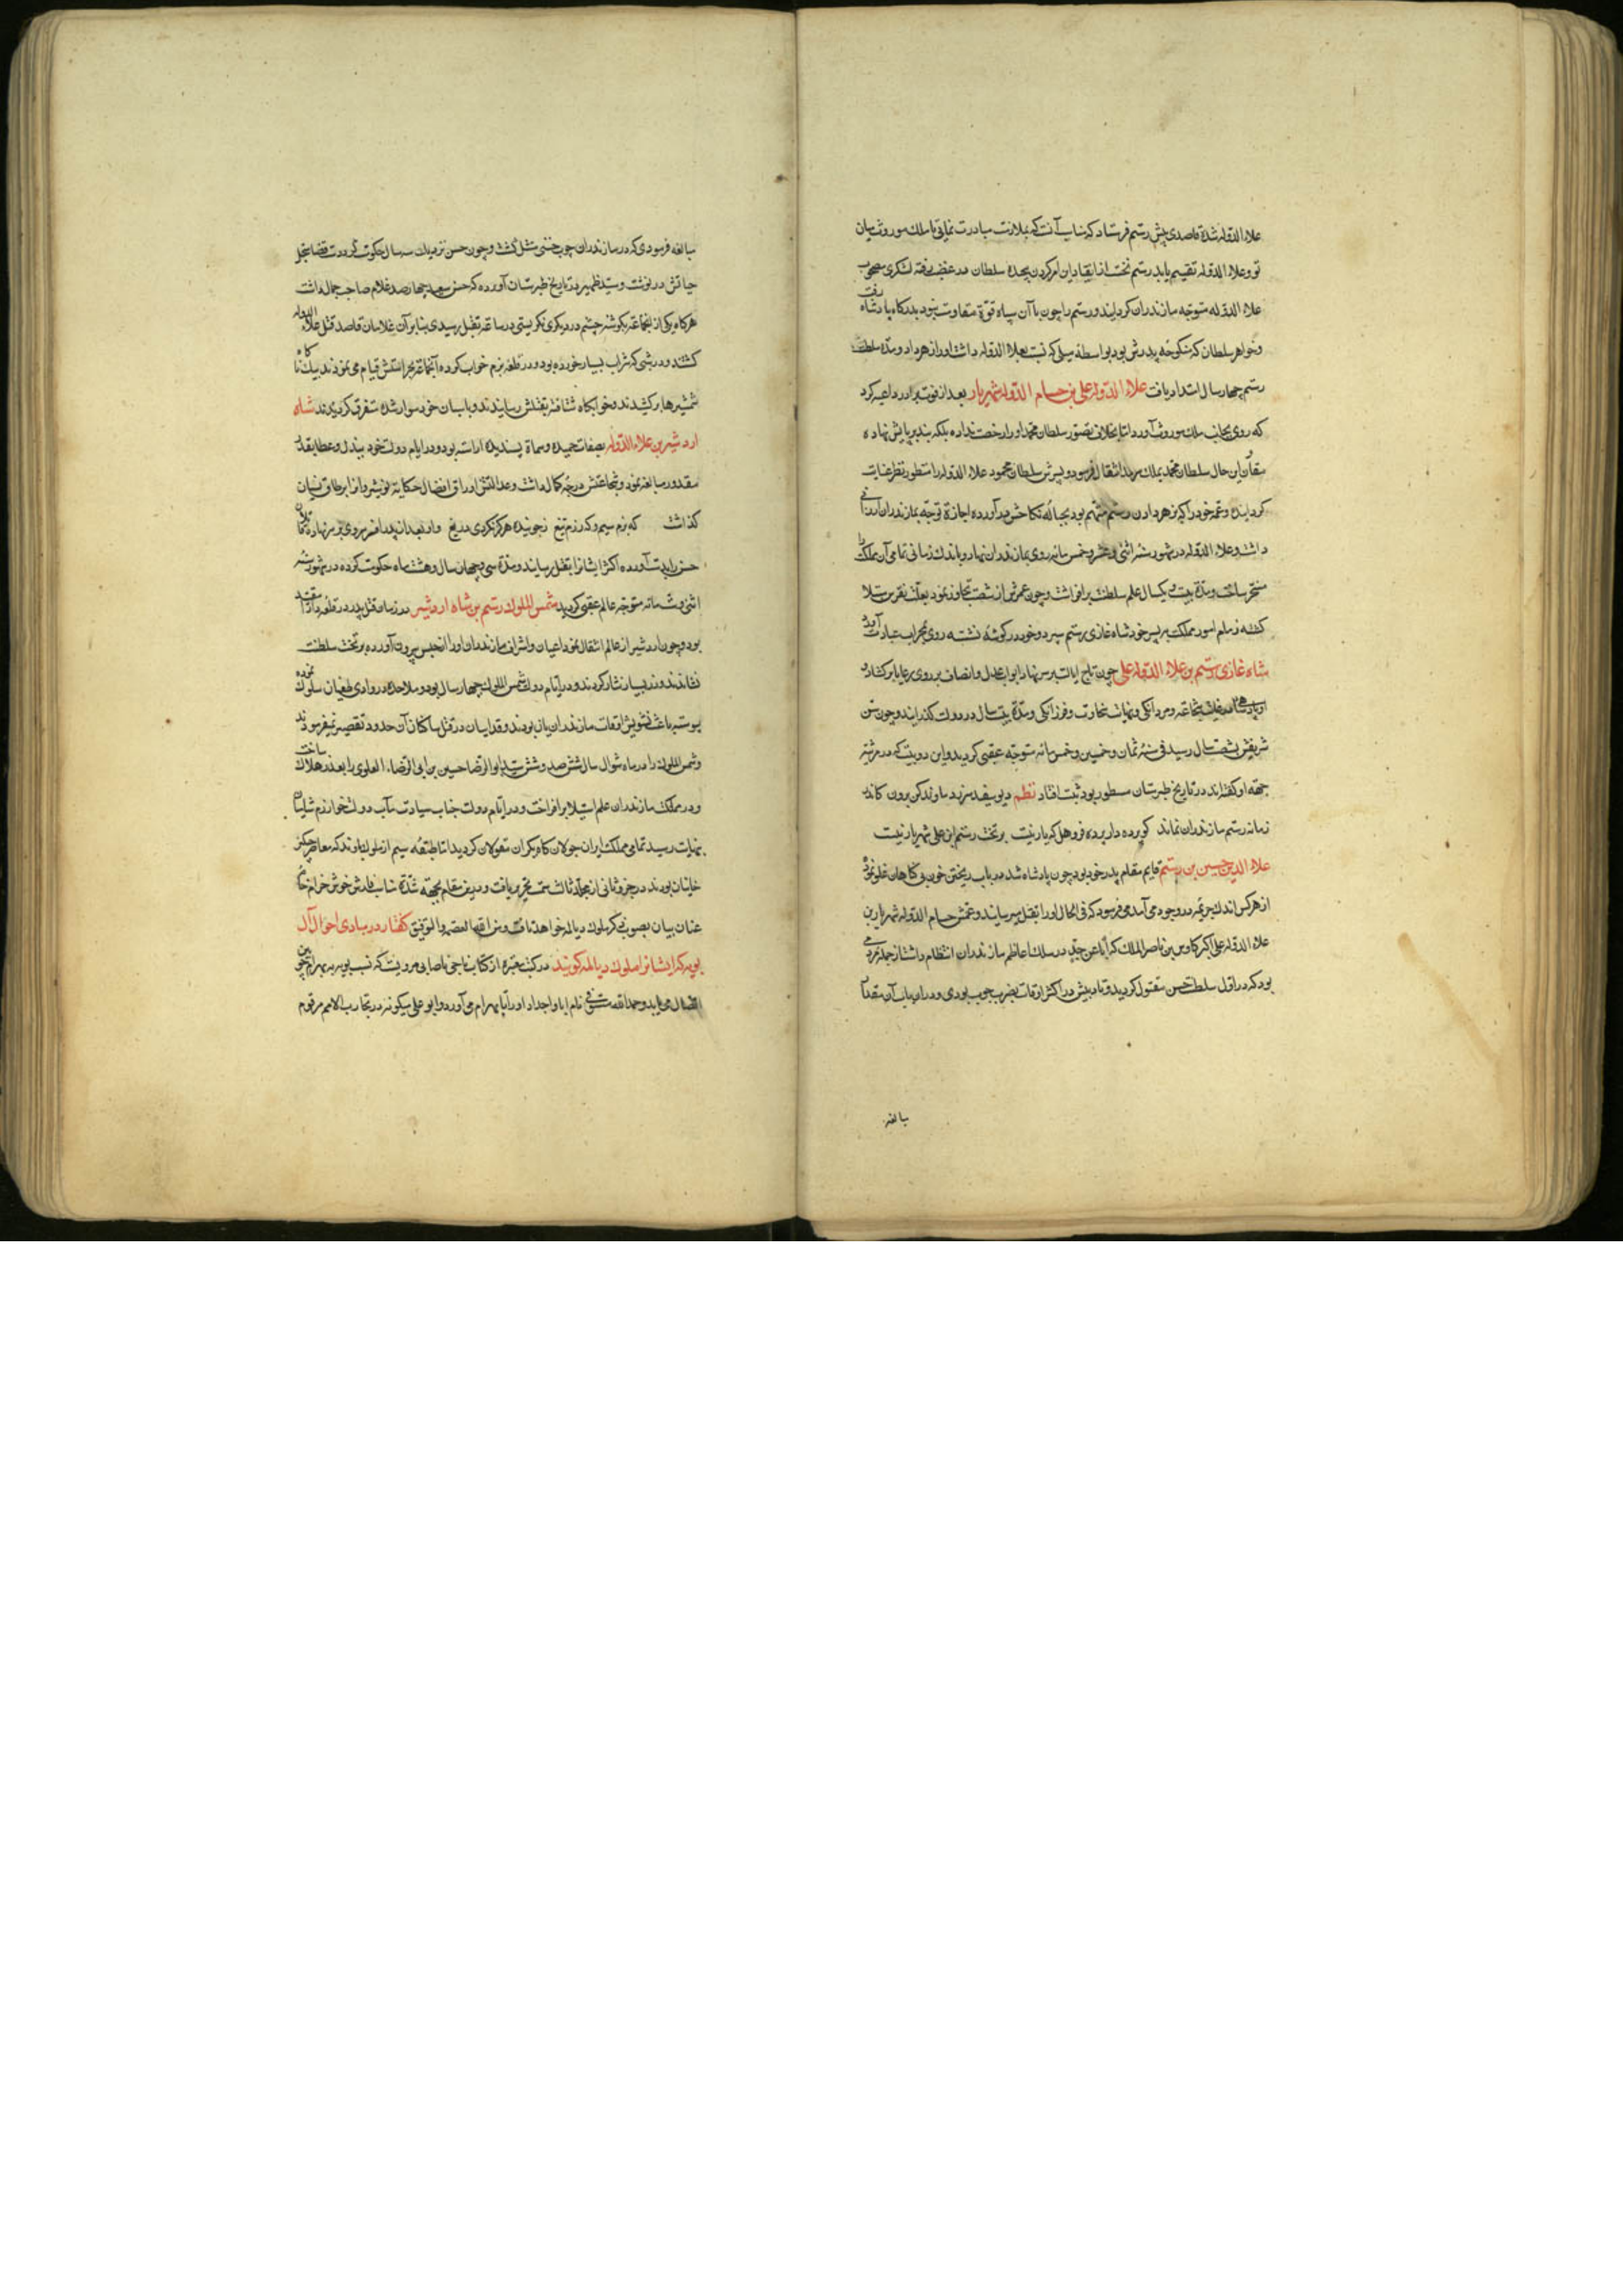 علاء الدوله شده قاصدی پیش رستم فرستاد که مناسب آنست که بملازمت مبادرت نمایی تا ملک موروث میان
تو و علاء الدوله تقسیم یابد رستم نخست از انقیاد این امر گردن پیچیده سلطان در غضب رفته لشکری مصحوب
علاء الدوله متوجه مازندران گردانید و رستم را چون با آن سپاه قوة مقاومت نبود بدرگاه پادشاه رفت
و خواهر سلطان که منکوحه پدرش بود بواسطه میلی که نسبت بعلاء الدوله داشت او را زهر داد و مدة سلطنت
رستم چهار سال امتداد یافت علاء الدوله علی بن حسام الدوله شهریار بعد از فوت برادر داعیه کرد
که روی بجانب ملک موروث آورد اما بخلاف تصور سلطان محمد او را رخصت نداده بلکه بند بر پایش نهاده
مقارن این حال سلطان محمد بملک سرمد انتقال فرمود و پسرش سلطان محمود علاء الدوله را منظور نظر عنایت
گردانیده و عمه خود را که بزهر دادن رستم متهم بود بحباله نکاحش درآورده اجازة توجه بمازندران ارزانی
داشت و علاء الدوله در شهور سنه اثنی و عشر و خمسمائه روی بمازندران نهاد و باندک زمانی تمامی آن مملکت را
مسخر ساخت و مدة بیست و یکسال علم سلطنت برافراشت و چون عمرش از شصت تجاوز نمود بعلت نقرس مبتلا
گشته زمام امور مملکت بپسر خود شاه غازی رستم سپرد و خود در گوشه نشسته روی بمحراب عبادت آورد
شاه غازی رستم بن علاء الدوله علی چون تاج ایالت بر سر نهاد ابواب عدل و انصاف بر روی رعایا برکشاد و
او پادشاه در غایت شجاعة و مردانگی و نهایت سخاوت و فرزانگی و مدة بیست سال در دولت گذرانید و چون سن
شریفش بشصت سال رسید فی سنه ثمان و خمسین و خمسمائه متوجه عقبی گردید و این دو بیت که در مرثیه
جهة او گفته‌اند در تاریخ طبرستان مسطور بود ثبت افتاد نظم دیو سفید سر زد ماوند کن برون کاندر
زمانه رستم مازندران نماند کو پرده دار پرده فروهل که بار نیست بر تخت رستم ابن علی شهریار نیست
علاء الدین حسین بن رستم قایم مقام پدر خود بود چون پادشاه شد در باب ریختن خون بی گناهان غلو نموده
از هر کس اندک جریمه در وجود می آمد می فرمود که فی الحال او را بقتل میرسانید و عمش حسام الدوله شهریار بن
علاء الدوله علی اکبر کاوس بن ناصر الملک که ابا عن جد در سلک اعاظم مازندران انتظام داشت از جمله مردمی
بود که در اول سلطنت حسن مقتول گردید و تادیبش در اکثر اوقات بضرب چوب بودی و در این باب آن مقدار
مبالغه
مبالغه فرمودی که در مازندران چوب حسنی مثل گشت و چون حسن نزدیک سه سال حکومت کرد دست قضا سجل
حیاتش درنوشت و سید ظهیر در تاریخ طبرستان آورده که حسن سعید چهارصد غلام صاحب جمال داشت
هرگاه یکی از آنجماعة بگوشه چشم در دیگری نگریستی در ساعة بقتل رسیدی بنابر آن غلامان قاصد قتل علاء الدوله
گشتند و در شبی که شراب بسیار خورده بود و در قلعه بزم خواب کرده آنجماعة بحراستش قیام می نمودند بیک ناگاه
شمشیرها برکشیدند و بخوابگاه شتافته بقتلش رسانیدند و باسبان خود سوار شده متفرق گردیدند شاه
اردشیر بن علاء الدوله بصفات حمیده و سماة پسندیده اراسته بود و در ایام دولت خود ببذل و عطا بقدر
مقدور مبالغه نمود و شجاعتش درجه کمال داشت و عدالتش اوراق افضال حکایة نوشیروانرا بر طاق نسیان
گذاشت که بزم سیم و که رزم تیغ زجوینده هرگز نکردی دریغ و او بعد از پدر افسر سروری بر سر نهاد قاتلان
حسن را بدست آورده اکثر ایشانرا بقتل رسانید و مدة سی و چهار سال و هشت ماه حکومت کرده در شهور سنه
اثنی و ستمائه متوجه عالم عقبی گردید شمس الملوک رستم بن شاه اردشیر در زمان قتل پدر در قلعه دارا مقید
بود و چون اردشیر از عالم انتقال نمود اعیان و اشراف مازندران او را از حبس بیرون آورده بر تخت سلطنت
نشاندند و زر بسیار نثار کردند و در ایام دولت شمس الملوک چهار سال بود و ملاحده در وادی طغیان سلوک نموده
پیوسته باعث تشویش اوقات مازندرانیان بودند و فداییان در قتل ساکنان آن حدود تقصیر نمیفرمودند
و شمس الملوک را در ماه شوال سال ششصد و شش سید ابوالرضا حسین بن ابی الرضاء العلوی را بعذر هلاک ساخت
و در مملکت مازندران علم استیلا برافراخت و در ایام دولت جناب سیادت مآب دولت خوارزم شاهیان
بنهایت رسید تمامی مملکت ایران جولانگاه لشکر مغولان گردید اما طبقه سیم از ملوک باوند که معاصر چنگیز
خانیان بودند در جزو ثانی از مجلد ثالث سمت تحریر یافت و درین مقام بجهة شدة مناسبت فارش خوش خرام خامه
عنان بیان بصوب ذکر ملوک دیالمه خواهد تافت و من الله العصمه والتوفیق گفتار در مبادی احوال آل
بویه که ایشانرا ملوک دیالمه گویند در کتب معتبره از کتاب تاجی صابی مرویست که نسب بویه به بهرام چوبین
اتصال می یابد و حمدالله مستوفی نام ابا و اجداد او را تا بهرام می آورد و ابو علی مسکویه در تجارب الامم مرقوم